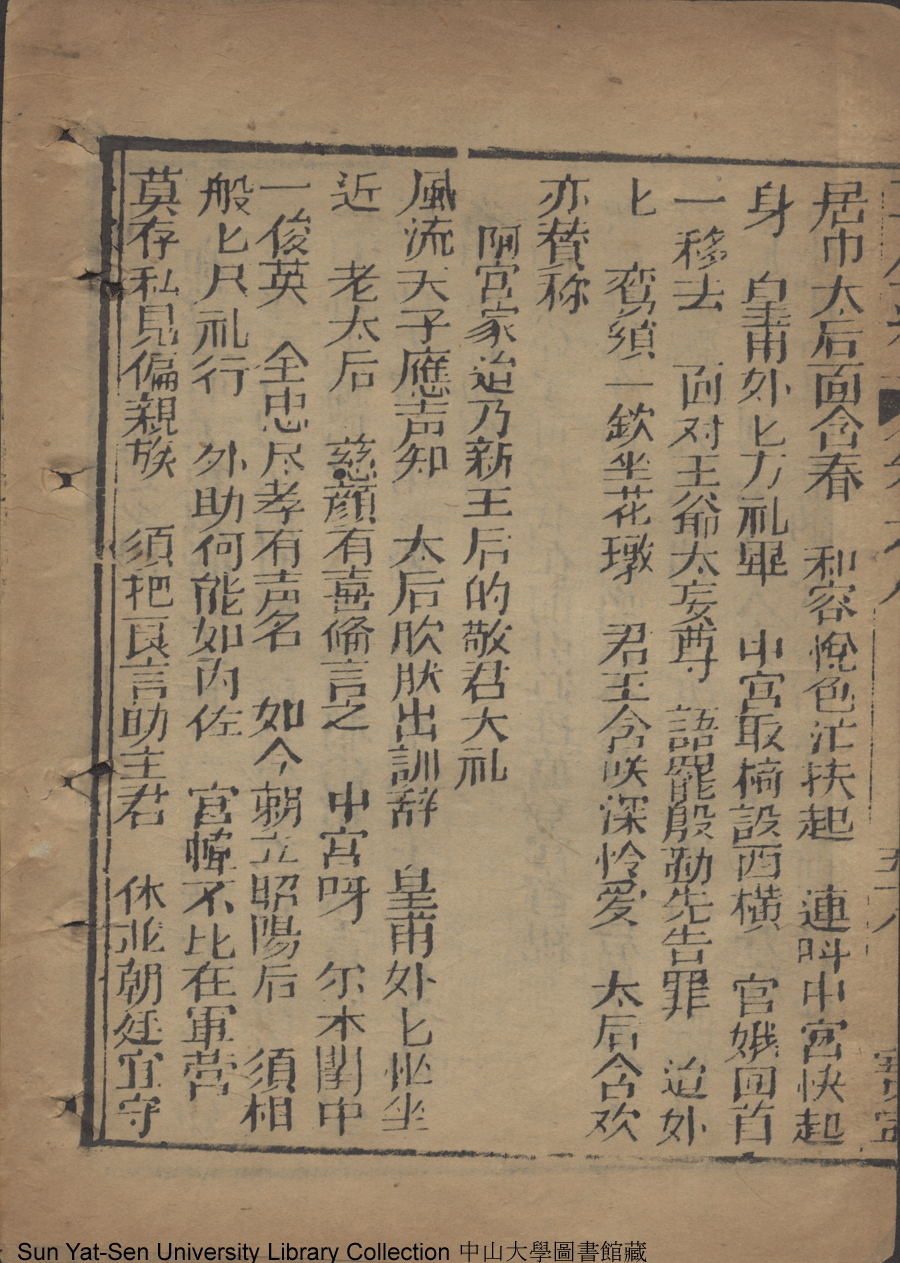 居巾太后面含春　和容悅色茫扶起　連呌中宮快起
身　皇甫外匕方礼畢　中宮取椅設西横　官娥回首
一移去　面对王爺太妄尊　語罷殷勤先告罪　迫外
匕　鸾須一欽坐花墩　君王含咲深怜爱　太后含欢
亦賛称
阿宫家迨乃新王后的敬君大礼
風流天子應声知　太后欣肰出訓辞　皇甫外匕怭坐
近　老太后　慈顔有喜俻言之　中宮呀　尔本閨中
一俊英　全忠尽孝有声名　如今朝立昭陽后　須相
般匕尺礼行　外助何能如内佐　宫幃不比在軍营
莫存私見偏親族　須把良言助主君　休业朝廷宜守
五十八
Sun Yat-Sen University Library Collection 中山大學圖書館藏